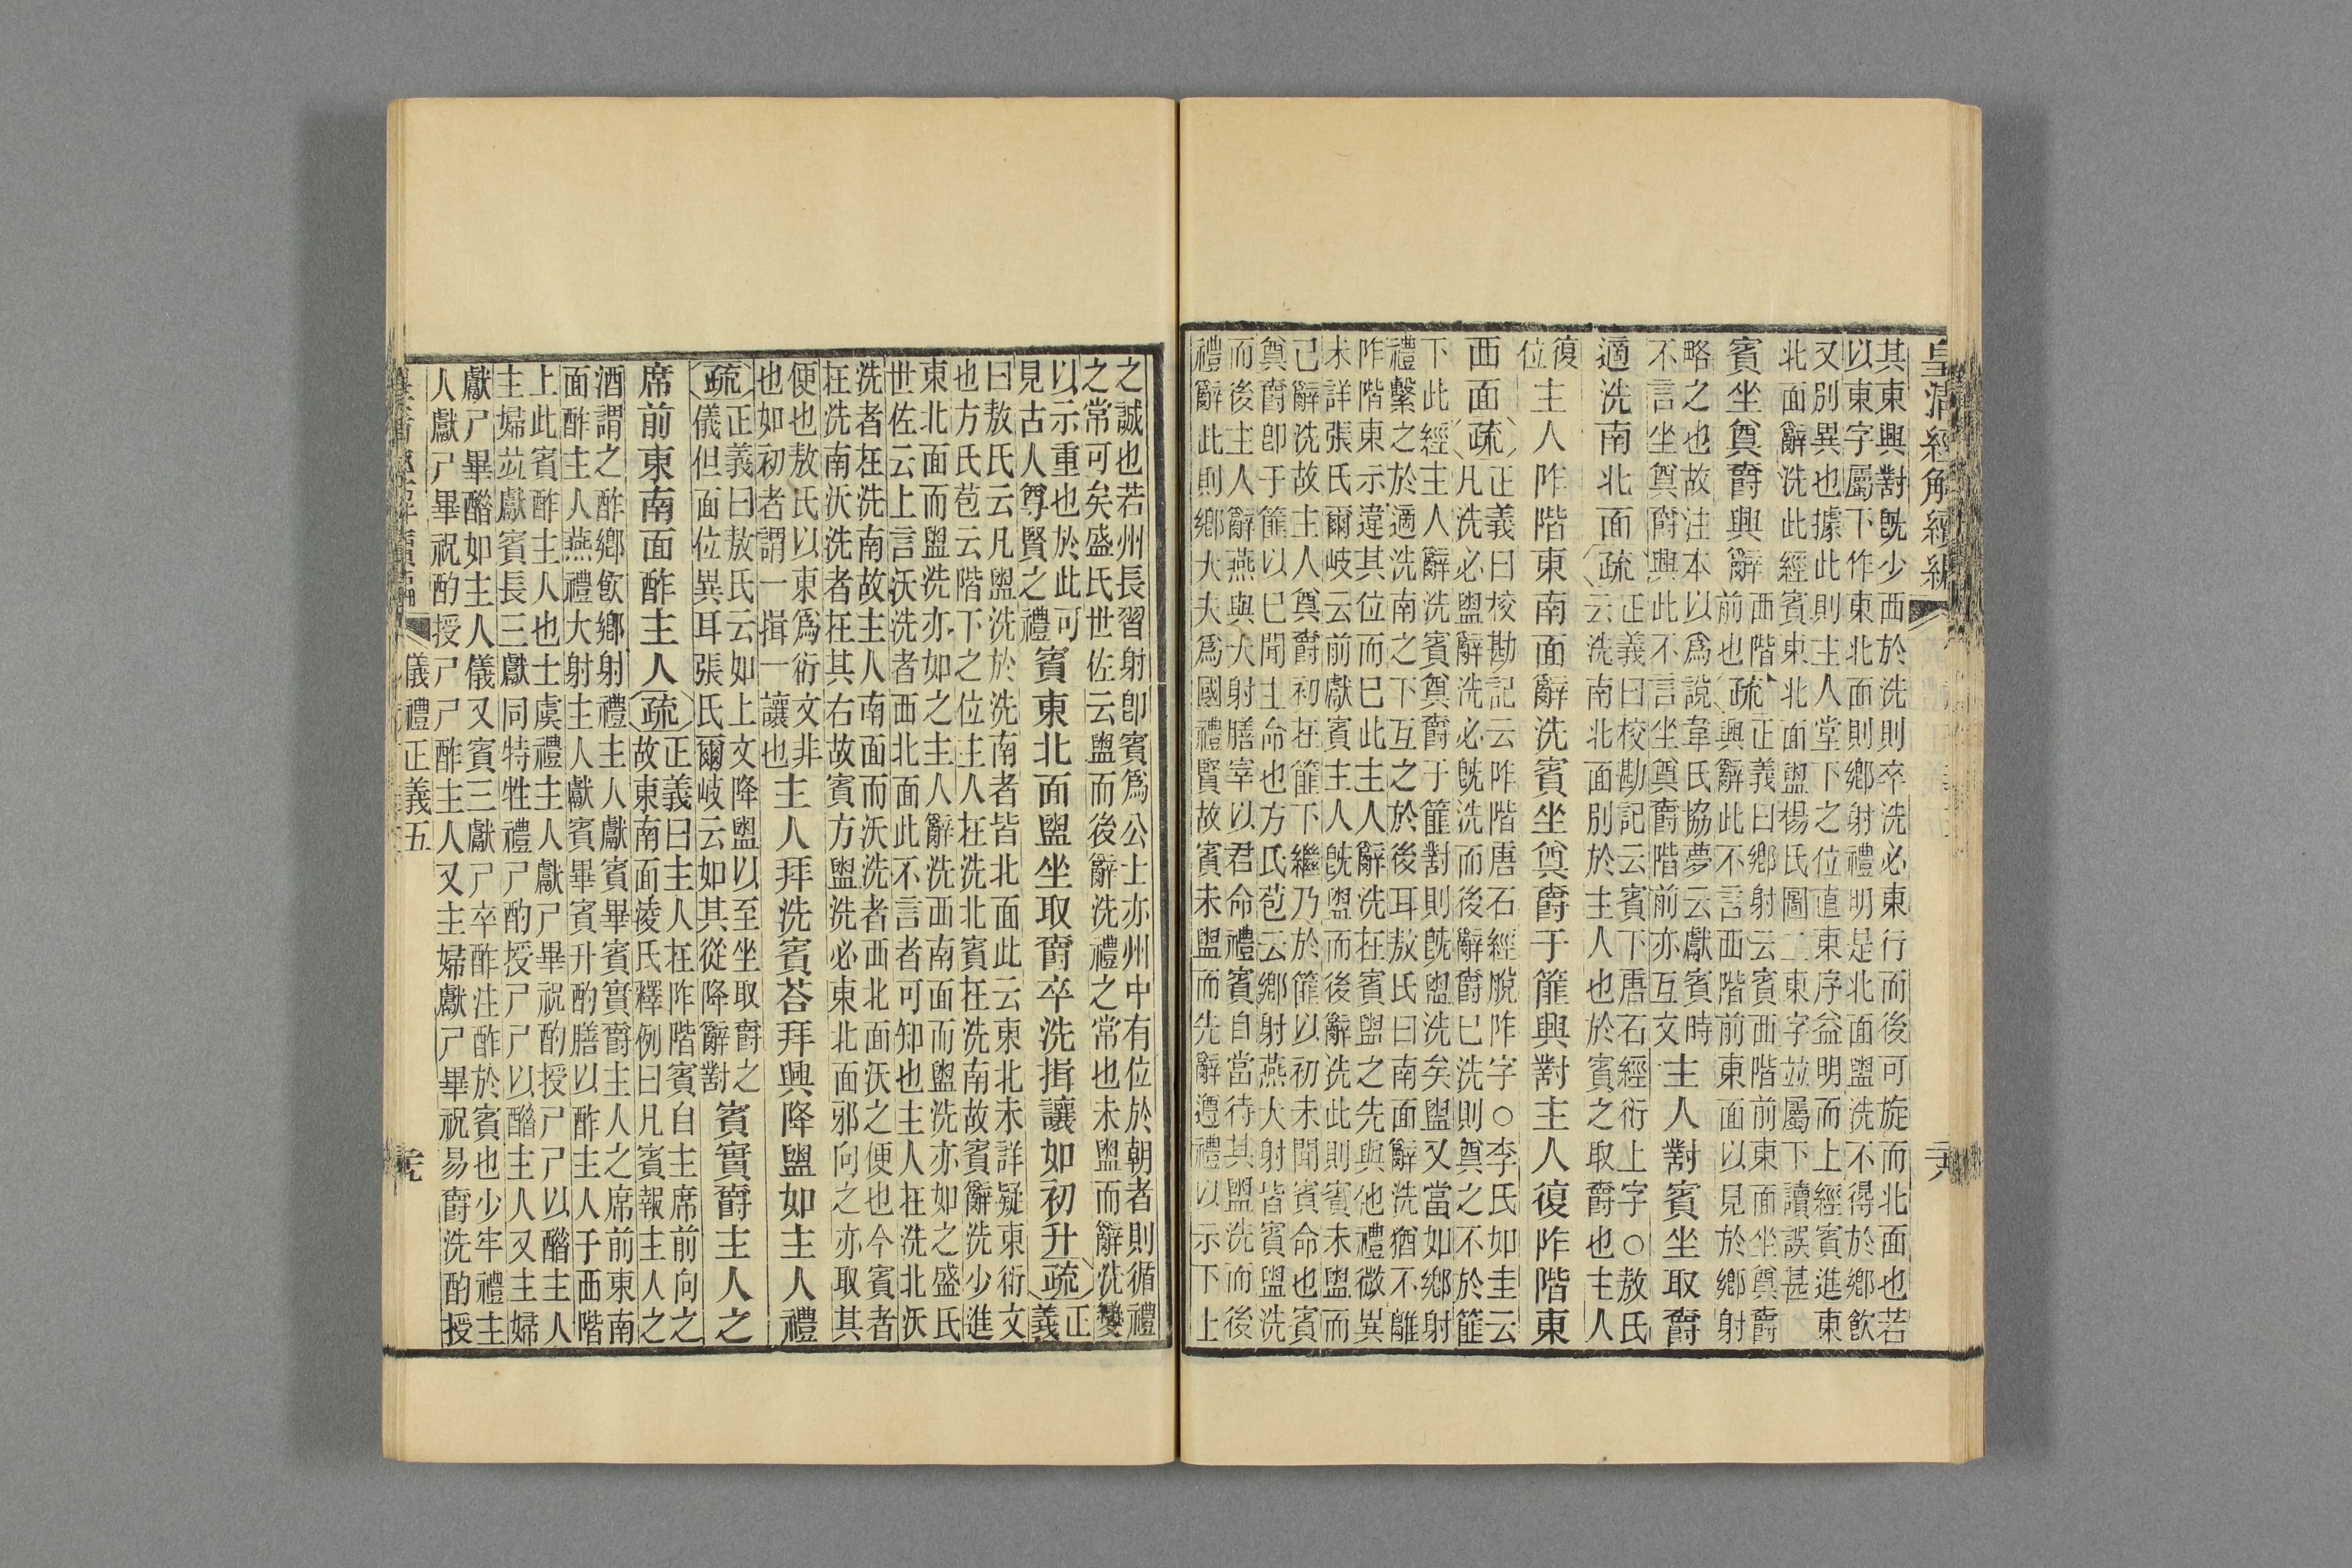 皇清經解續編
其東興對旣少西於洗則卒洗必東行而後可旋而北面也若
以東字屬下作東北面則鄉射禮明是北面盥洗不得於鄉飲
又別異也據此則主人堂下之位直東序益明而上經賓進東
北面辭洗此經賓東北面盥楊氏圖二東字並屬下讀誤甚
賓坐奠爵興辭
西階
前也
疏
正義曰鄉射云賓西階前東面坐奠爵
興辭此不言西階前東面以見於鄉射
略之也故注本以爲說韋氏協夢云獻賓時
不言坐奠爵興此不言坐奠爵階前亦互文
主人對賓坐取爵
適洗南北面
疏
正義曰校勘記云賓下唐石經衍上字○敖氏
云洗南北面別於主人也於賓之取爵也主人
復
位
主人阼階東南面辭洗賓坐奠爵于篚興對主人復阼階東
西面
疏
正義曰校勘記云阼階唐石經脫阼字○李氏如圭云
凡洗必盥辭洗必旣洗而後辭爵已洗則奠之不於篚
下此經主人辭洗賓奠爵于篚對則旣盥洗矣盥又當如鄉射
禮繫之於適洗南之下互之於後耳敖氏曰南面辭洗猶不離
阼階東示違其位而已此主人辭洗在賓盥之先與他禮微異
未詳張氏爾岐云前獻賓主人旣盥而後辭洗此則賓未盥而
已辭洗故主人奠爵初在篚下繼乃於篚以初未聞賓命也賓
奠爵卽于篚以已聞主命也方氏苞云鄉射燕大射皆賓盥洗
而後主人辭燕與大射膳宰以君命禮賓自當待其盥洗而後
禮辭此則鄉大夫爲國禮賢故賓未盥而先辭遵禮以示下上
之誠也若州長習射卽賓爲公士亦州中有位於朝者則循禮
之常可矣盛氏世佐云盥而後辭洗禮之常也未盥而辭洗變
以示重也於此可
見古人尊賢之禮
賓東北面盥坐取爵卒洗揖讓如初升
疏
正
義
曰敖氏云凡盥洗於洗南者皆北面此云東北未詳疑東衍文
也方氏苞云階下之位主人在洗北賓在洗南故賓辭洗少進
東北面而盥洗亦如之主人辭洗西南面而盥洗亦如之盛氏
世佐云上言沃洗者西北面此不言者可知也主人在洗北沃
洗者在洗南故主人南面而沃洗者西北面沃之便也今賓者
在洗南沃洗者在其右故賓方盥洗必東北面邪向之亦取其
便也敖氏以東爲衍文非
也如初者謂一揖一讓也
主人拜洗賓荅拜興降盥如主人禮
疏
正義曰敖氏云如上文降盥以至坐取爵之
儀但面位異耳張氏爾岐云如其從降辭對
賓實爵主人之
席前東南面酢主人
疏
正義曰主人在阼階賓自主席前向之
故東南面淩氏釋例曰凡賓報主人之
酒謂之酢鄉飲鄉射禮主人獻賓畢賓實爵主人之席前東南
面酢主人燕禮大射主人獻賓畢賓升酌膳以酢主人于西階
上此賓酢主人也士虞禮主人獻尸畢祝酌授尸尸以醋主人
主婦並獻賓長三獻同特牲禮尸酌授尸尸以醋主人又主婦
獻尸畢醋如主人儀又賓三獻尸卒酢注酢於賓也少牢禮主
人獻尸畢祝酌授尸尸酢主人又主婦獻尸畢祝易爵洗酌授
儀禮正義五